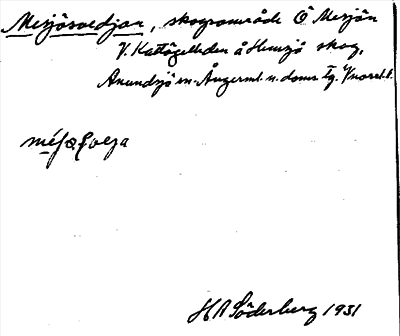 Mesjösvedjan, skogsområde Ö Mesjön
V. Kattögelheden å Hemsjö skog,
Anundsjö sn. Ångerml. n. doms tg. Y norrl. l.
H A Söderberg 1931